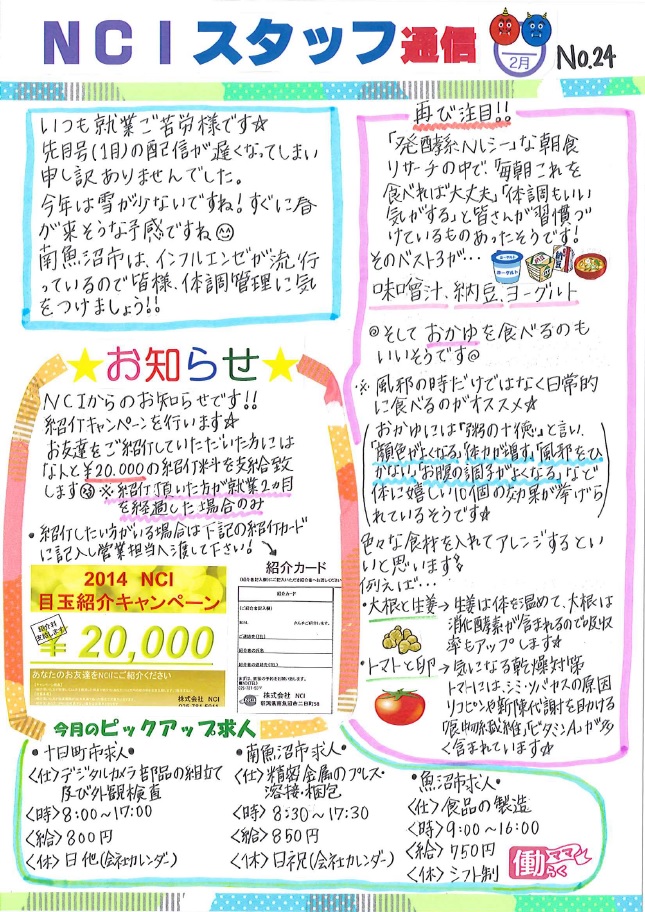 NCIスタッフ通信
2月
No.24
いつも就業ご苦労様です☆
先月号(1月)の配信が遅くなってしまい
申し訳ありませんでした。
今年は雪が少ないですね!すぐに春
が来そうな予感ですね
南魚沼市は、インフルエンゼが流行
っているので皆様、体調管理に気
をつけましょう!!
★お知らせ★
NCIからのお知らせです!!
紹介キャンペーンを行います☆
お友達をご紹介していただいた方には
なんと¥20.000の紹介料を支給致
します ※紹介頂いた方が就業2ヵ月
を経過した場合のみ
・紹介したい方がいる場合は下記の紹介カード
に記入し営業担当へ渡して下さい!
2014 NCI
目玉紹介キャンペーン
紹介料
支給します
¥20,000
あなたのお友達をNCIにご紹介ください
株式会社 NCI
紹介カード
株式会社 NCI
再び注目!!
「発酵系ヘルシー」な朝食
リサーチの中で、「毎朝これを
食べれば大丈夫」「体調もいい
気がする」と皆さんが習慣づ
けているものあったそうです!
そのベスト3が…
ヨーグルト
納豆
味噌汁、納豆、ヨーグルト
◎そしておかゆを食べるのも
いいそうです◎
※風邪の時だけではなく日常的
に食べるのがオススメ☆
(おかゆには「粥の十徳」と言い、
「顔色がよくなる」「体力が増す」「風邪をひ
かない」「お腹の調子がよくなる」などで
体に嬉しい10個の効果が挙げら
れているそうです☆)
色々な食材を入れてアレンジするとい
いと思います
例えば…
・大根と生姜→生姜は体を温めて、大根は
消化酵素が含まれるので吸収
率もアップします☆
・トマトと卵→気になる乾燥対策
トマトには、シミ・ソバカスの原因
リコピンや新陳代謝を助ける
食物繊維、「ビタミンA」が多
く含まれています☆
今月のピックアップ求人
・十日町市求人・
<仕>デジタルカメラ部品の組立て
及び外観検査
<時>8:00~17:00
<給>800円
<休>日他(会社カレンダー)
・南魚沼市求人・
<仕>精密金属のプレス・
溶接・梱包
<時>8:30~17:30
<給>850円
<休>日祝(会社カレンダー)
・魚沼市求人・
<仕>食品の製造
<時>9:00~16:00
<給>750円
<休>シフト制
働らくママ